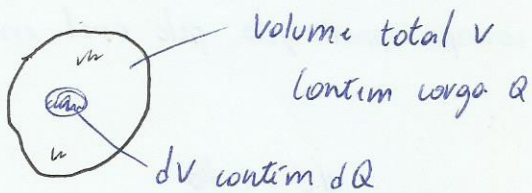 Volume total V
Contém carga Q
dV contém dQ